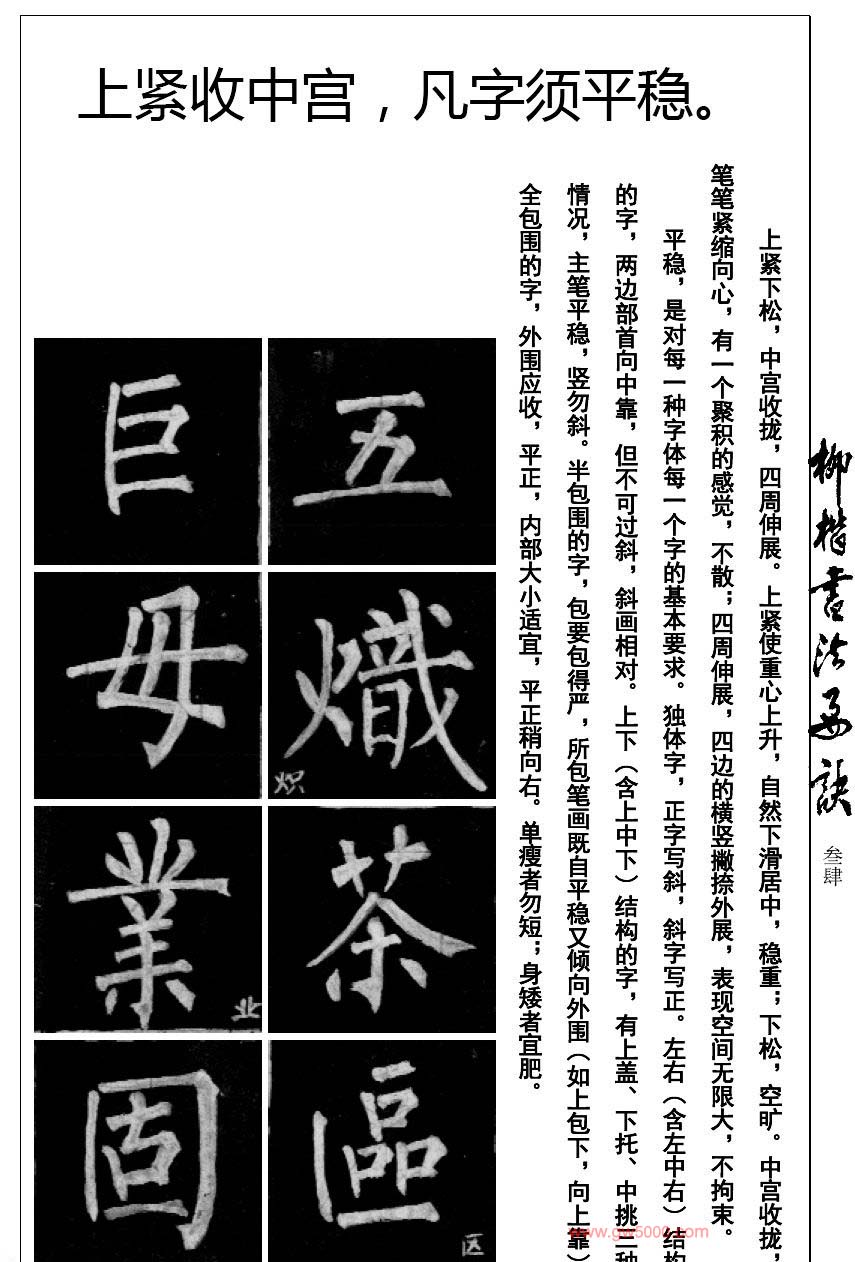 上紧收中宫，凡字须平稳。
上紧下松，中宫收拢，四周伸展。上紧使重心上升，自然下滑居中，稳重；下松，空旷。中宫收拢，
笔笔紧缩向心，有一个聚积的感觉，不散；四周伸展，四边的横竖撇捺外展，表现空间无限大，不拘束。
平稳，是对每一种字体每一个字的基本要求。独体字，正字写斜，斜字写正。左右（含左中右）结构
的字，两边部首向中靠，但不可过斜，斜画相对。上下（含上中下）结构的字，有上盖、下托、中挑三种
情况，主笔平稳，竖勿斜。半包围的字，包要包得严，所包笔画既自平稳又倾向外围（如上包下，向上靠）
全包围的字，外围应收，平正，内部大小适宜，平正稍向右。单瘦者勿短；身矮者宜肥。
五
巨
熾
炽
毋
茶
業
业
區
区
固
柳楷書法要訣
叁肆
www.gw5000.com